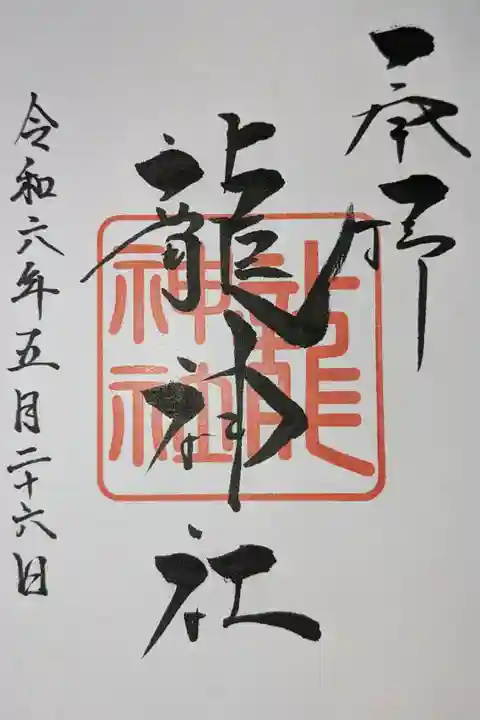 奉拝
龍神社
龍神社
令和六年五月二十六日